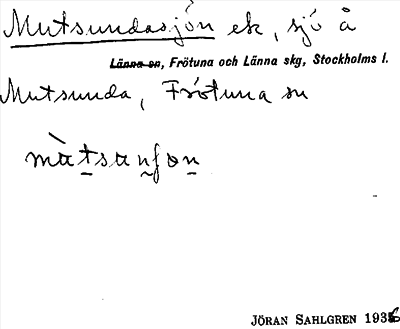 Mutsundasjön ek, sjö å
Länna sn, Frötuna och Länna skg, Stockholms l.
Mutsunda, Frötuna sn
JÖRAN SAHLGREN 1936